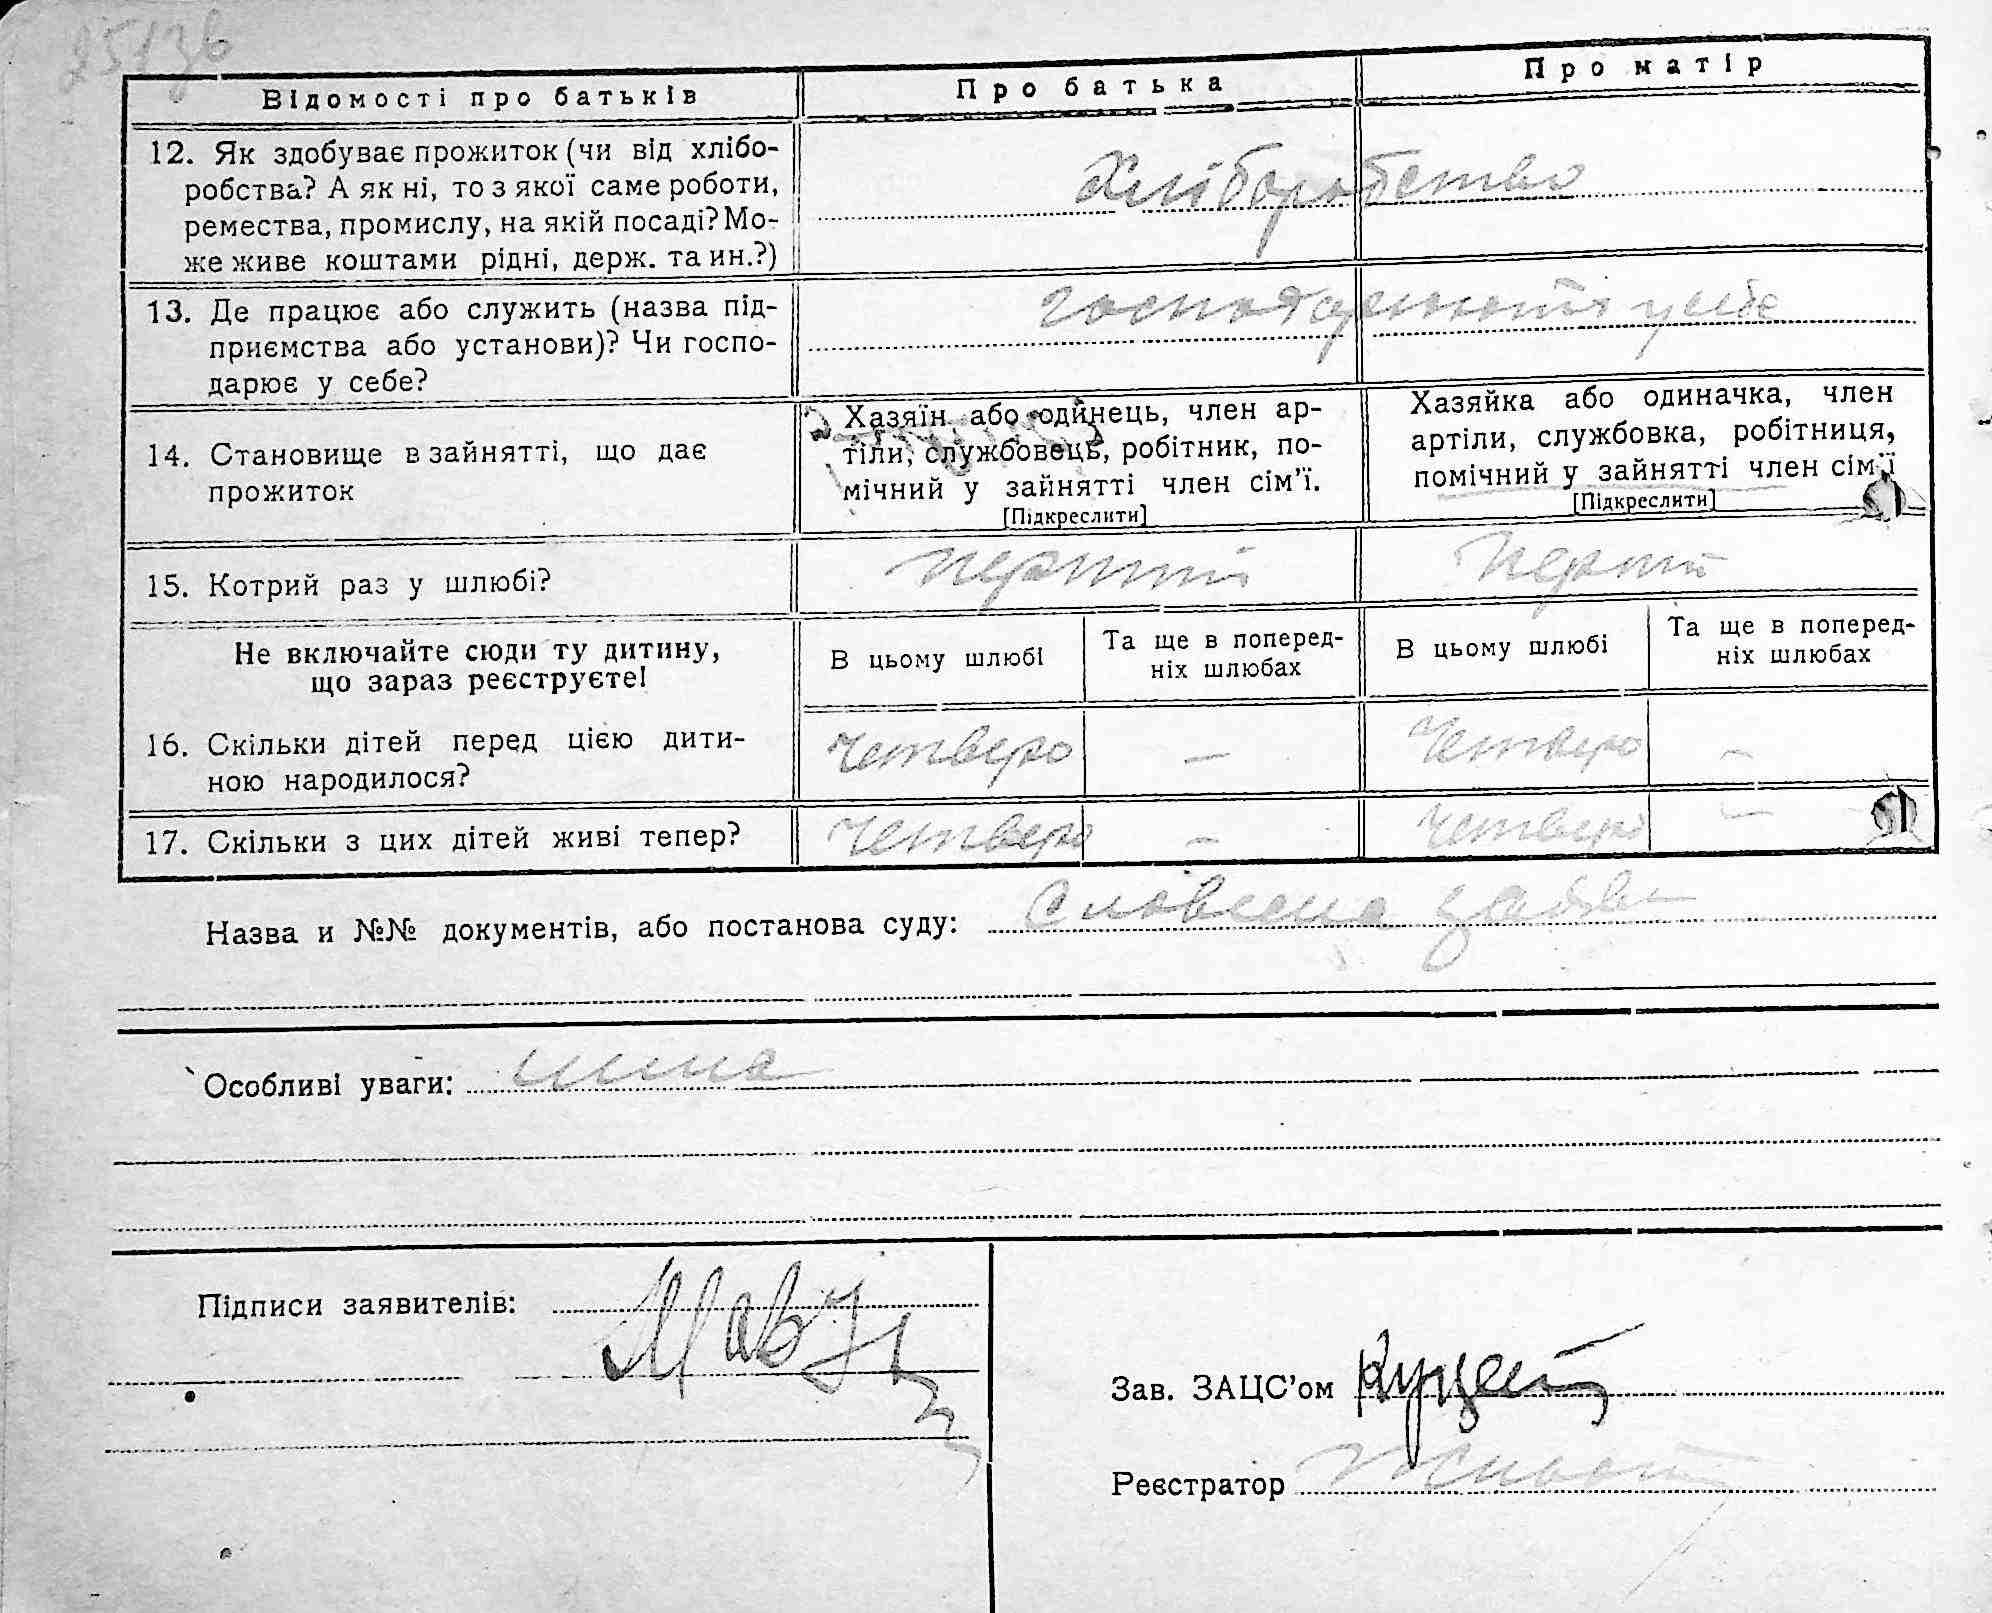 25136
Відомості про батьків Про батька Про матір
12. Як здобуває прожиток (чи від хлібо-
робства? А як ні, то з якої саме роботи,
ремества, промислу, на якій посаді? Мо-
же живе коштами рідні, держ. та ин.?)
Хліборобство
13. Де працює або служить (назва під-
приємства або установи)? Чи госпо-
дарює у себе?
господарюють у себе
14. Становище в зайнятті, що дає
прожиток
Хазяїн або одинець, член ар-
тіли, службовець, робітник, по-
мічний у зайнятті член сім'ї.
[Підкреслити]
Хазяйка або одиначка, член
артіли, службовка, робітниця,
помічний у зайнятті член сім'ї
[Підкреслити]
15. Котрий раз у шлюбі? перший перший
Не включайте сюди ту дитину,
що зараз реєструєте!
В цьому шлюбі
Та ще в поперед-
ніх шлюбах
В цьому шлюбі
Та ще в поперед-
ніх шлюбах
16. Скільки дітей перед цією дити-
ною народилося?
четверо – четверо –
17. Скільки з цих дітей живі тепер? четверо – четверо –
Назва и №№ документів, або постанова суду: Словесна заява
Особливі уваги: нема
Підписи заявителів:
Зав. ЗАЦС'ом
Реєстратор